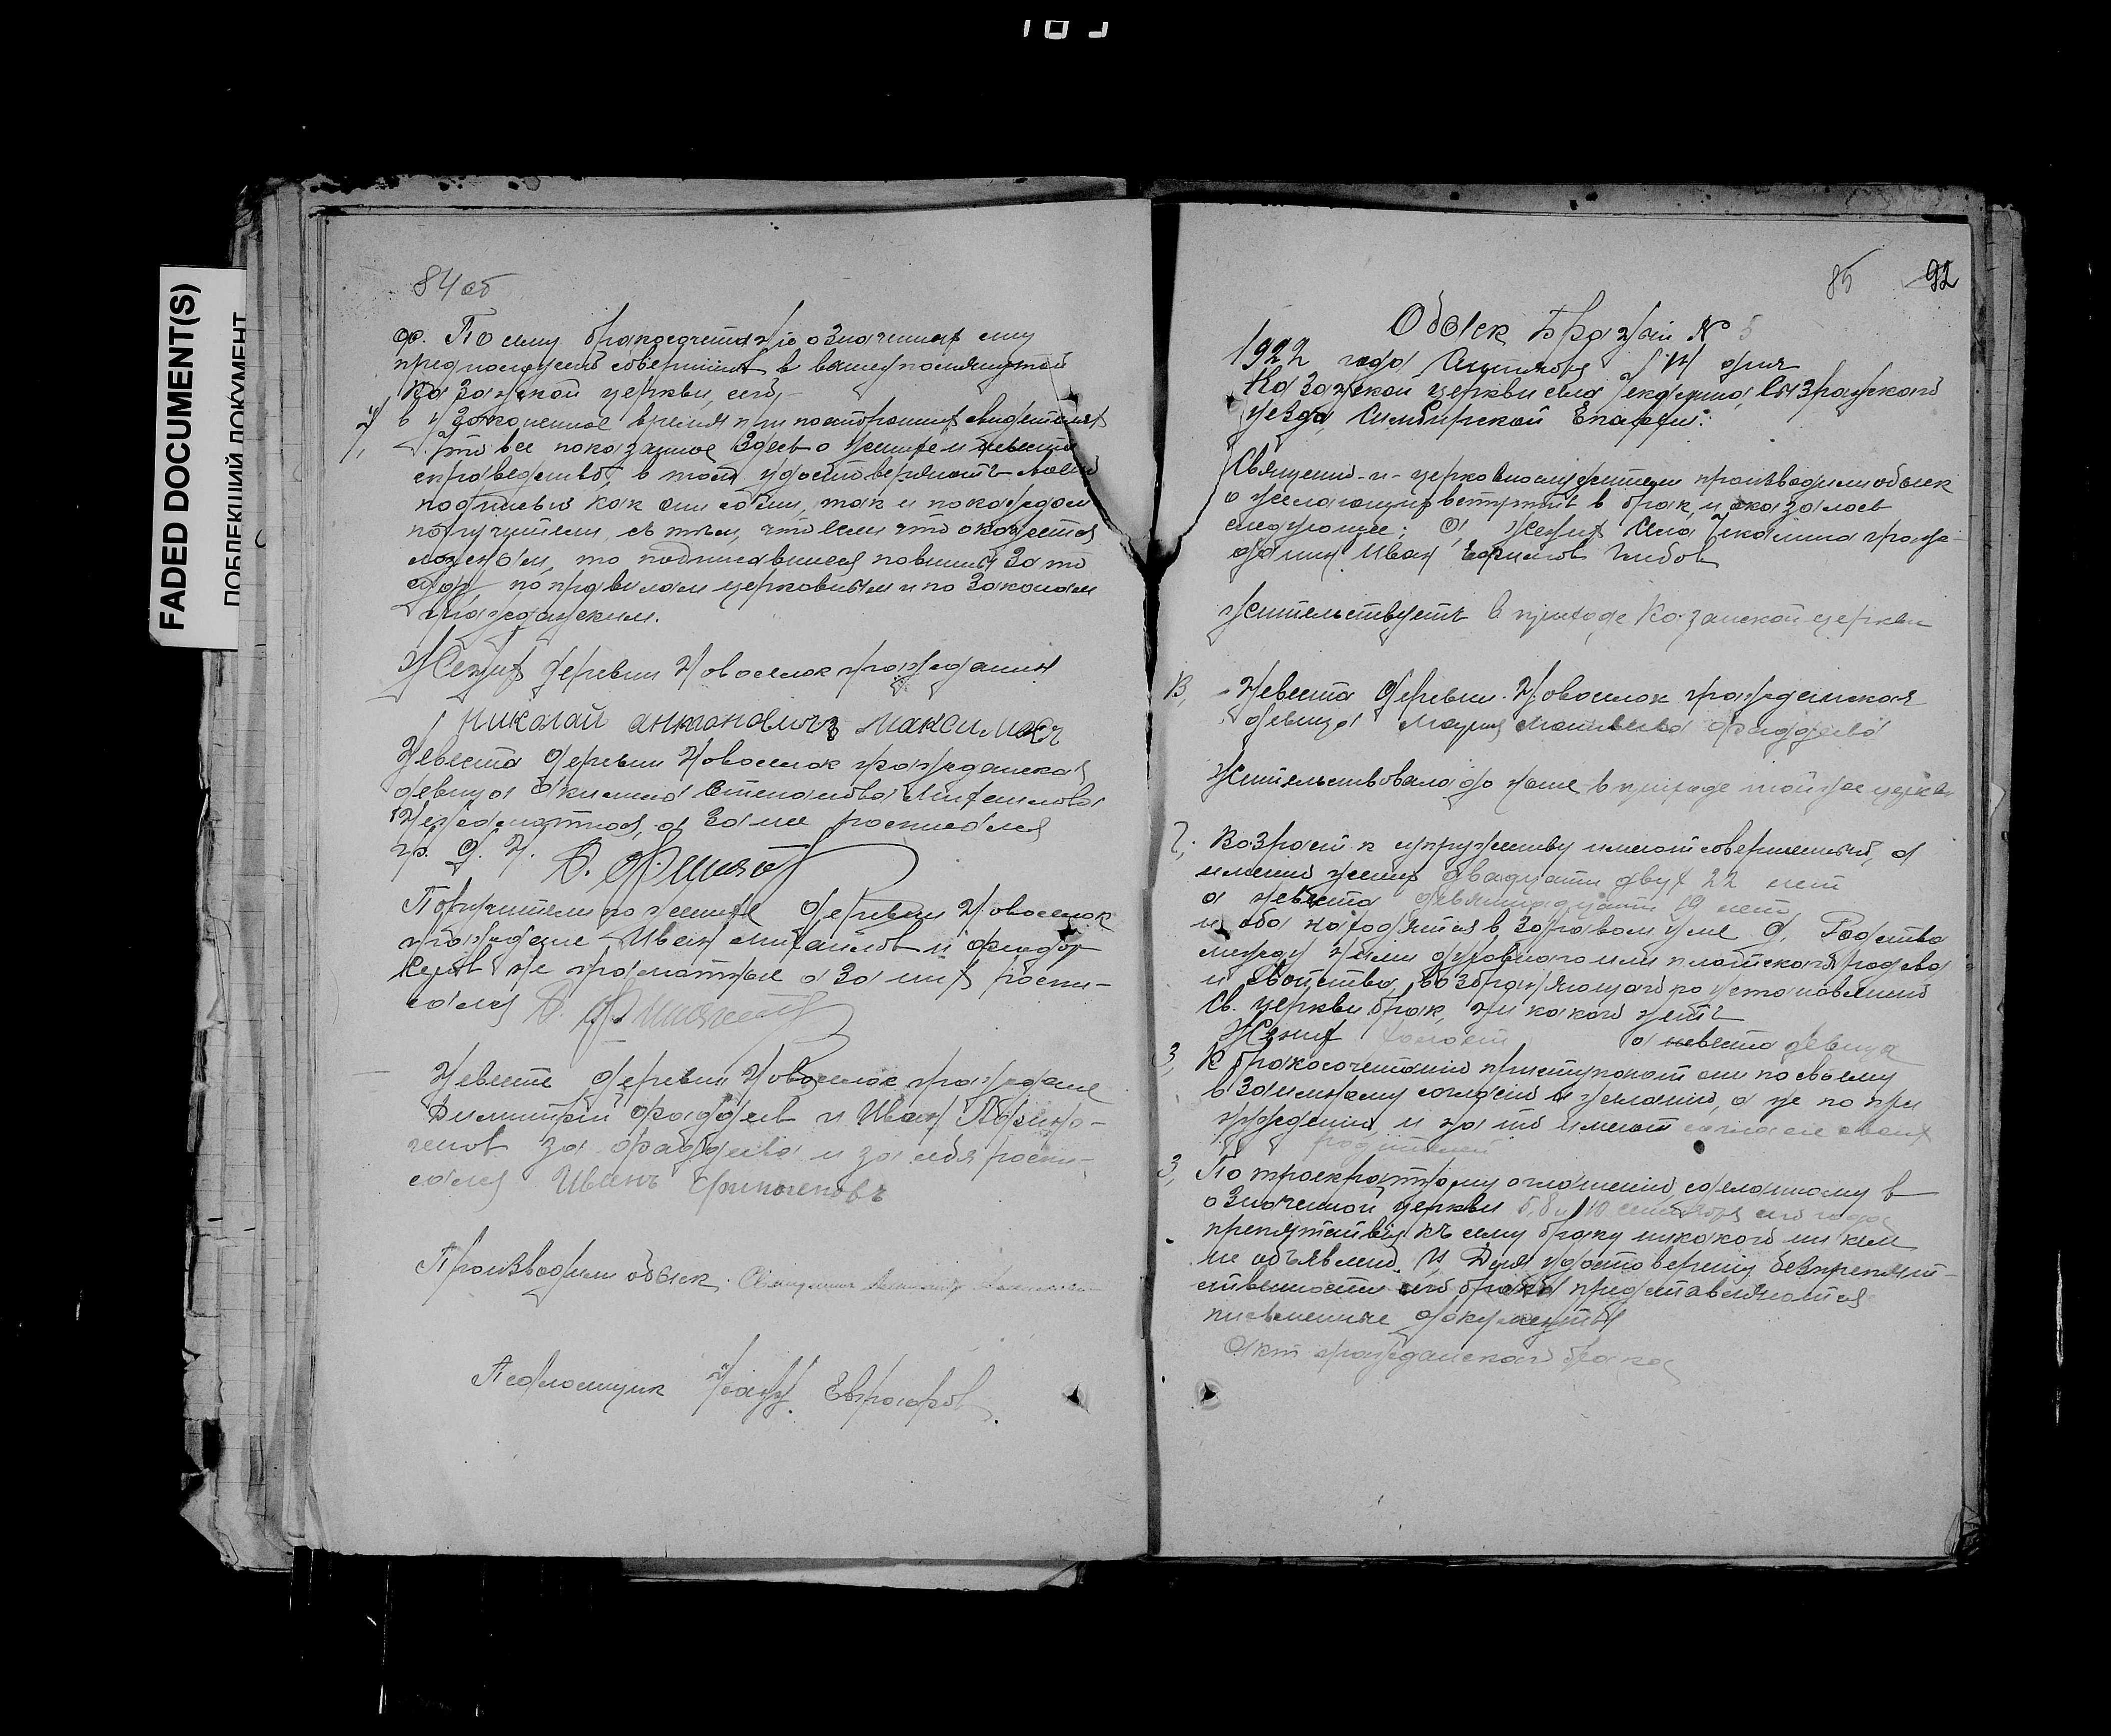 FADED DOCUMENT(S)
ПОБЛЕКШИЙ ДОКУМЕНТ
84 об
ф. По сему бракосочетанію означенных ему
предполагаетъ совершить в вышеупомянутой
Казанской церкви, сего
в узаконенное время при посторонних свидетелях
7, Что все показанное здесь о женихе и невесте
справедливо, в том удостоверяють своею
подписью как они сами, так и по каждом
поручители, съ тем, что если что окажется
ложным, то подписавшиеся повинны за то
суду по правилам церковным и по законам
гражданским.
Жених деревни Новоселок гражданин
Николай антоновичъ Максимовъ
Невеста деревни Новоселок гражданская
девица Акилина Степанова Михайлова
Неграмотная, а за нее росписался
гр. Д. Н.
Поручители по женихе деревни Новоселок
граждане Иван Михайлов и Федор
не грамотные а за них роспи-
сался
Невесте деревни Новоселок граждане
Димитрий Фаддеев и Иван
за Фаддеева и за себя роспи-
сался Иванъ
Производили обыск: Священник
Псаломщик Іоанн Евграфов
85 92
Обыск Брачный № 5
1922 года Сентября дня
Казанской церкви села Сызранского
уезда, Симбирской Епархии:
Священно-и-церковнослужители производили обыск
о желающих вступить в брак, и оказалось
следующее: а, Жених села гражд-
данин Иван Глебов
жительствуетъ в приходе Казанской церкви
В, Невеста деревни Новоселок гражданская
девица Мария Матвеева Фаддеева
Жительствовала до ныне в приходе той же церкви
Г, Возраст к супружеству имеют совершенный, а
именно жених двадцати двух 22 лет
а невеста девятнадцати 19 лет
и оба находятся в здравом уме Д, Родства
между ними духовнаго или плотскаго родства
и свойства, возбраняющаго по установлению
Св. церкви брак, никакого нетъ
Жених холост а невеста девица
3, К бракосочетанию приступают они по своему
взаимному согласию и желанию, а не по при
нуждению и на то имеют согласие своих
родителей
3, По троекратному оглашению, сделанному в
означенной церкви 5, 8 и 10 сентября сего года
препятствия къ сему браку никакого ни кем
не объявлено. И Для удостоверения безпрепят-
ственности сего брака представляются
письменные документы
Акт гражданского брака